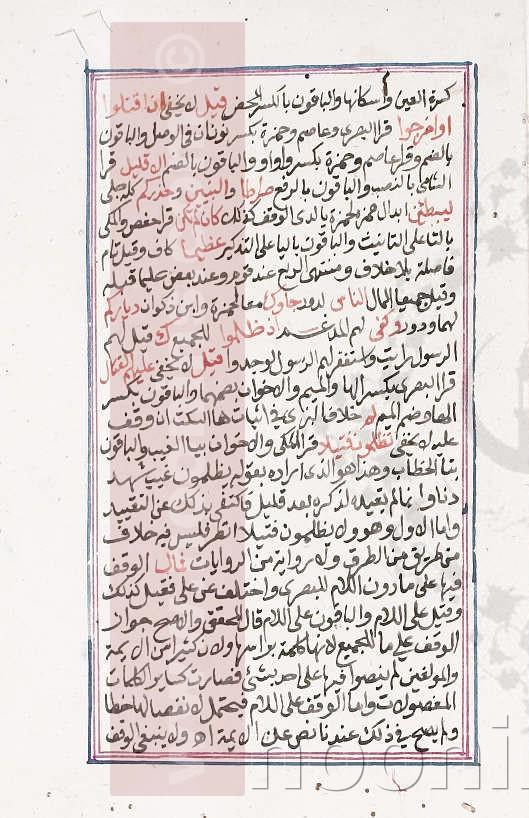 كسرة العين واسكانها والباقون بالكسر المحض قيل لا يخفى ان اقتلوا
او اخرجوا قرا البصري وعاصم وحمزة بكسر نون ان في الوصل والباقون
بالضم وقرا عاصم وحمزة بكسر واو او والباقون بالضم الا قليل قرا
الشامي بالنصب والباقون بالرفع صراطا والنبيين وحذركم كله جلي
ليبطئن ابدال همزه لحمزة لدى الوقف كذلك كان لم تكن قرا حفص والمكي
بالتا على التانيث والباقون باليا على التذكير عظيما كاف وقيل تام
فاصلة بلا خلاف ومنتهى الربع عند قوم وعند بعض عليما قبله
وقيل جميعا الممال الناس لدور جاوك معا لحمزة وابن ذكوان دياركم
لهما ودور وكفى لهم المدغم اذ ظلموا للجميع ك قيل لهم
الرسول رايت واستغفر لهم الرسول لوجدوا قيل لا يخفى عليهم القتال
قرا البصري بكسر الها والميم والاخوان بضمهما والباقون بكسر
الها وضم الميم لم خلاف البزي في اثبات ها السكت ان وقف
عليه لا يخفى تظلمون فتيلا قرا المكي والاخوان بيا الغيب والباقون
بتا الخطاب وهذا هو الذي اراده بقوله يظلمون غيب شهد
دنا ولم يقيده لذكره بعد قليل فاكتفى بذلك عن التقييد
واما الاول وهو ولا يظلمون فتيلا انظر فليس فيه خلاف
من طريق من الطرق ولا رواية من الروايات فمال الوقف
فيها على ما دون اللام للبصري واختلف عن علي فقيل كذلك
وقيل على اللام والباقون على اللام قال المحقق والاصح جواز
الوقف على ما للجميع لانها كلمة براسها ولان كثيرا من الايمة
والمولفين لم ينصوا فيها على احد بشئ فصارت كساير الكلمات
المفصولات واما الوقف على اللام فيحتمل لانفصالها خطا
ولم يصح في ذلك عندنا نص عن الايمة اه ولا ينبغي الوقف
nooni